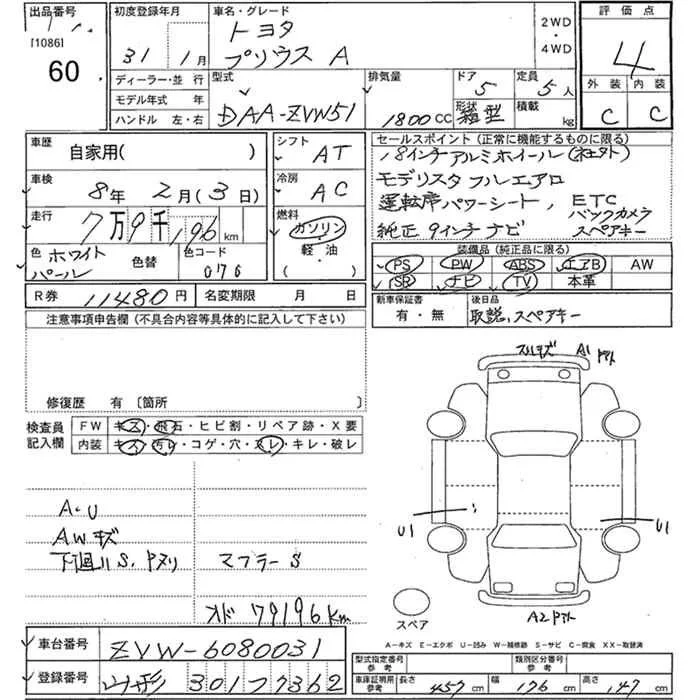 出品番号
[1086]
60
初度登録年月
31年 1月
車名・グレード
トヨタ
プリウス A
2WD
・
4WD
評価点
4
外装 内装
C C
ディーラー・並行
モデル年式 年
ハンドル 左・右
型式
DAA-ZVW51
排気量
1800CC
ドア 5
定員 5人
形状 箱型
積載 kg
車歴
自家用( )
車検
8年 2月(3日)
走行
7万9千196km
色 ホワイトパール
色替
色コード
070
シフト
AT
冷房
AC
燃料
ガソリン
軽・油
( )
R券 11480円 名変期限 月 日
セールスポイント(正常に機能するものに限る)
18インチアルミホイール(社外)
モデリスタ フルエアロ
運転席パワーシート, ETC
バックカメラ
純正9インチナビ スペアキー
装備品(純正品に限る)
PS PW ABS エアB AW
SR ナビ TV 本革
新車保証書
有・無
後日品
取説, スペアキー
注意事項申告欄(不具合内容等具体的に記入して下さい)
修復歴 有 〔箇所
検査員
記入欄
FW キズ・飛石・ヒビ割・リペア跡・X要
内装 キズ・汚レ・コゲ・穴・スレ・キレ・破レ
A・U
AWキズ
下廻りS、Pヌリ マフラーS
オド 79196km
A1
U1
U1
A2
スペア
A−キズ E−エクボ U−凹み W−補修跡 S−サビ C−腐食 XX−取替済
車台番号 ZVW-6080031
登録番号 山形 301ラ7362
型式指定番号
参考
類別区分番号
参考
車庫証明用
参考
長さ 457cm 幅 176cm 高さ 147cm